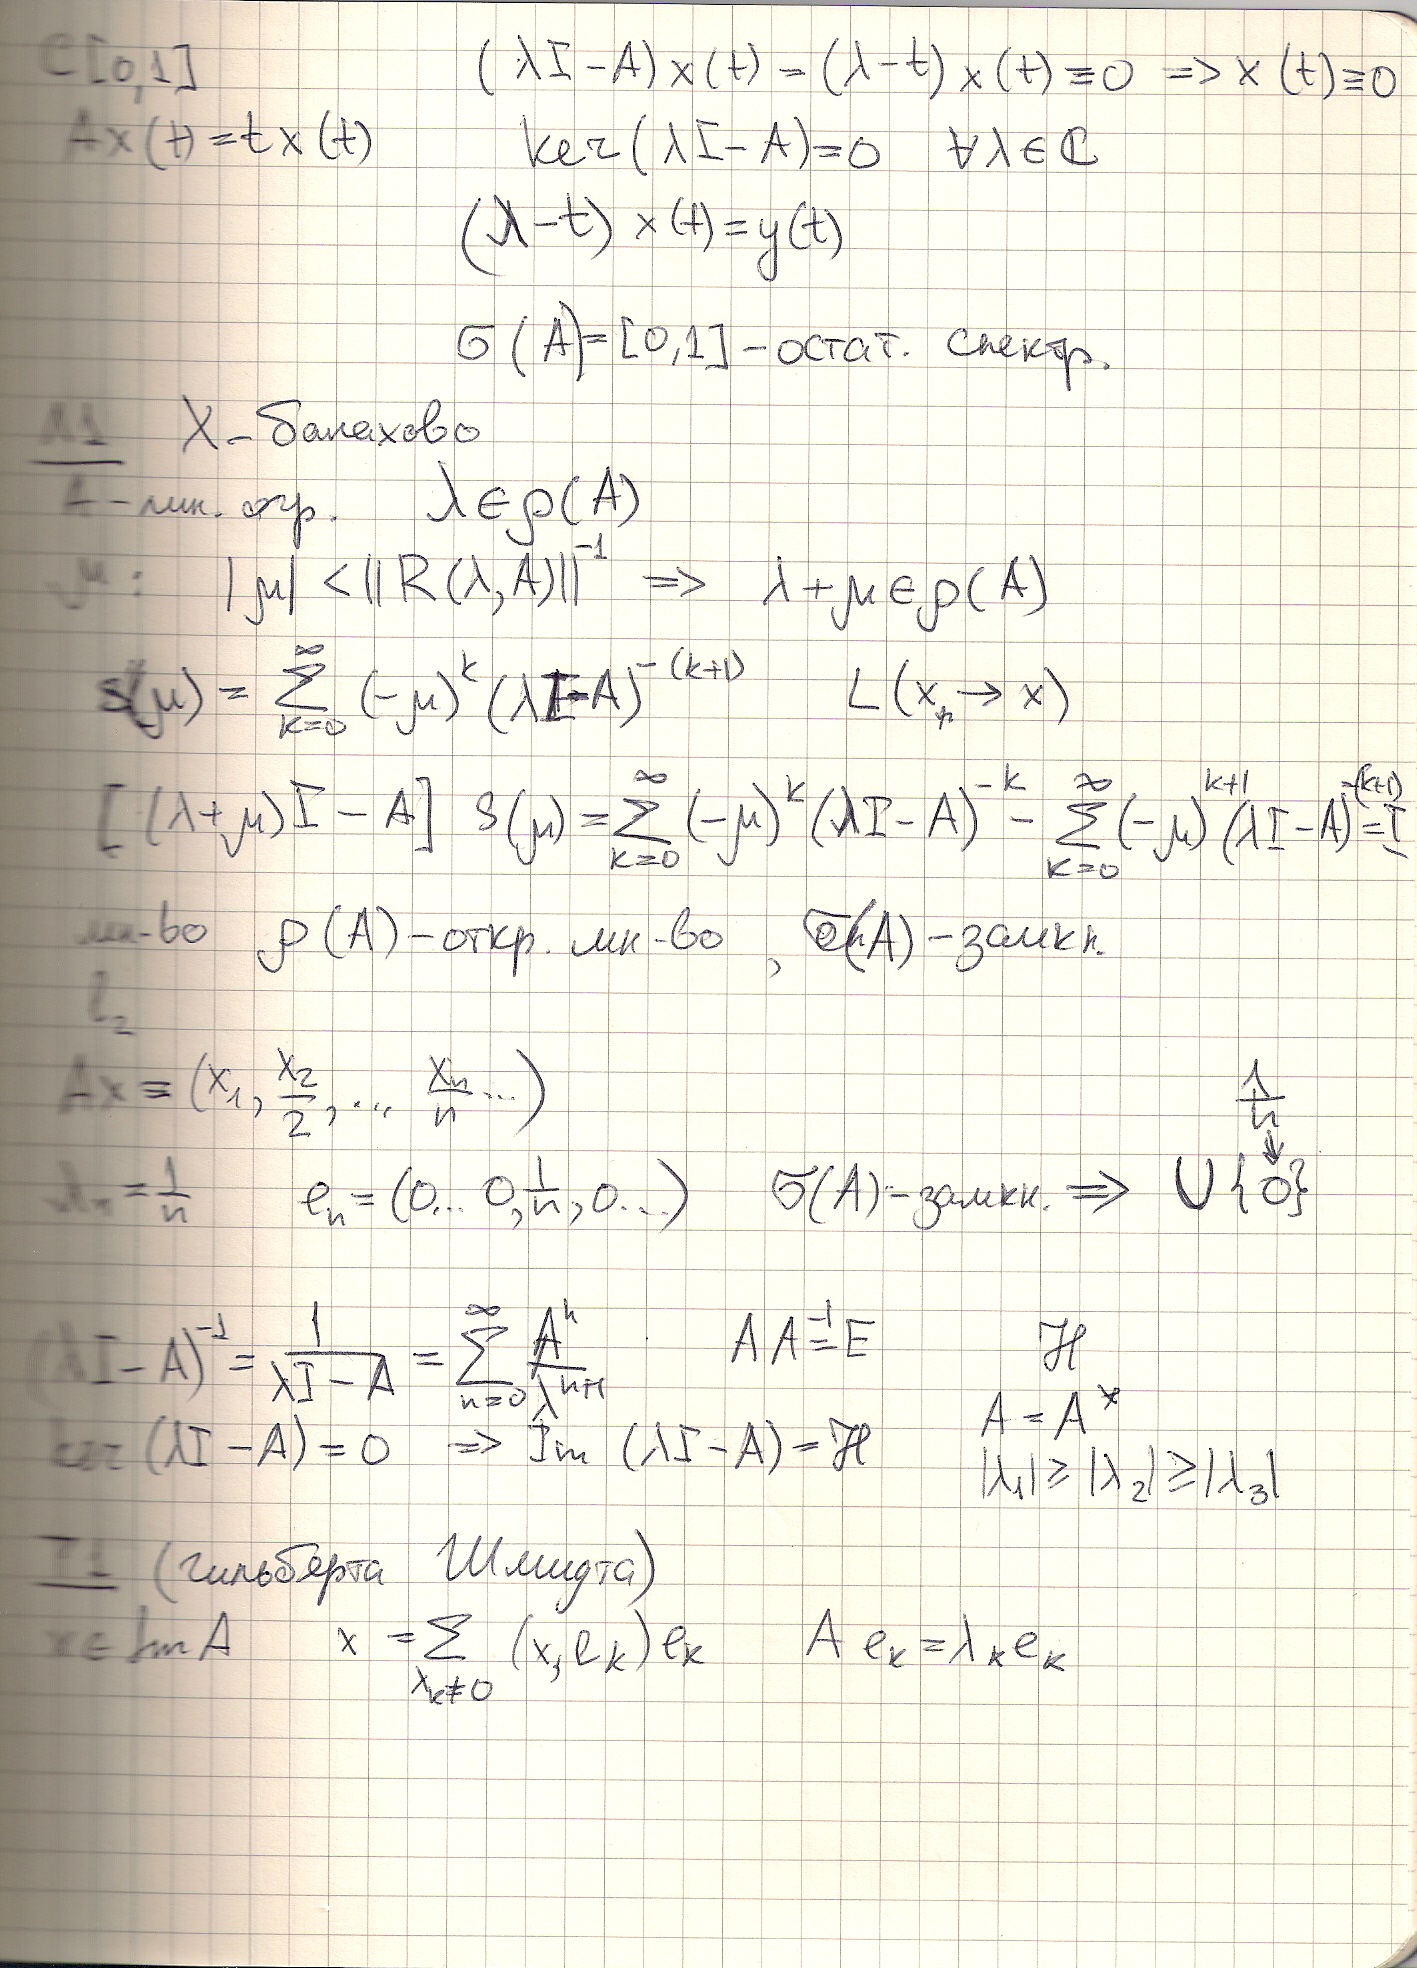 C[0,1] (λI-A)x(t) = (λ-t)x(t) ≡ 0 => x(t) ≡ 0
Ax(t) = tx(t) ker(λI-A) = 0 ∀λ∈ℂ
(λ-t)x(t) = y(t)
σ(A) = [0,1] - остат. спектр.
Л1 X - банахово
A - лин. огр. λ∈ρ(A)
μ: |μ| < ||R(λ,A)||⁻¹ => λ+μ∈ρ(A)
S(μ) = ∑_{k=0}^{∞} (-μ)^k (λI-A)^{-(k+1)} L(x → x)
[(λ+μ)I - A] S(μ) = ∑_{k=0}^{∞} (-μ)^k (λI-A)^{-k} - ∑_{k=0}^{∞} (-μ)^{k+1} (λI-A)^{-(k+1)} = I
мн-во ρ(A) - откр. мн-во, σ(A) - замкн.
l₂
Ax = (x₁, x₂/2, ... xₙ/n ...)
1/n
λₙ = 1/n eₙ = (0... 0, 1/n, 0...) σ(A) - замкн. => ∪{0}
(λI-A)⁻¹ = 1/(λI-A) = ∑_{n=0}^{∞} Aⁿ/λ^{n+1} AA⁻¹ = E H
A = A*
ker(λI-A) = 0 => Im(λI-A) = H
|λ₁| ≥ |λ₂| ≥ |λ₃|
Т1 (Гильберта Шмидта)
x∈ImA x = ∑_{λₖ≠0} (x, eₖ)eₖ A eₖ = λₖeₖ